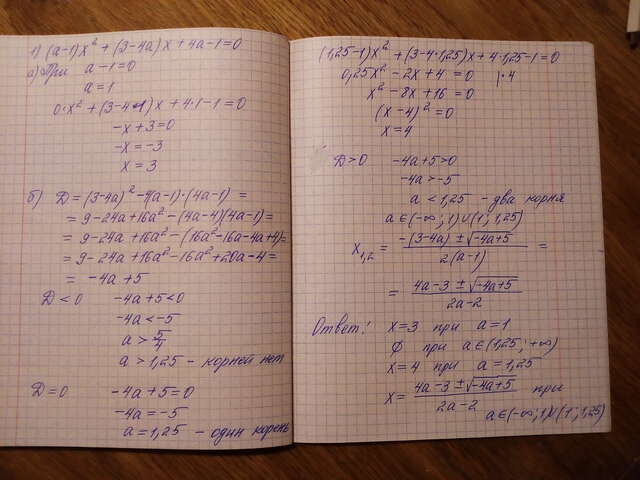 1) (a-1)x² + (3-4a)x + 4a-1=0
а) При a-1=0
a=1
0·x² + (3-4·1)x + 4·1-1=0
-x+3=0
-x=-3
x=3
б) D = (3-4a)² - 4(a-1)·(4a-1) =
= 9-24a+16a² - (4a-4)(4a-1) =
= 9-24a+16a² - (16a²-16a-4a+4) =
= 9-24a+16a²-16a²+20a-4 =
= -4a+5
D<0 -4a+5<0
-4a<-5
a > 5/4
a > 1,25 - корней нет
D=0 -4a+5=0
-4a=-5
a=1,25 - один корень
(1,25-1)x² + (3-4·1,25)x + 4·1,25-1=0
0,25x² - 2x + 4 = 0 |·4
x² - 8x + 16 = 0
(x-4)² = 0
x=4
D>0 -4a+5>0
-4a>-5
a < 1,25 - два корня
a∈(-∞;1)∪(1;1,25)
x₁,₂ = (-(3-4a) ± √(-4a+5)) / (2(a-1)) =
= (4a-3 ± √(-4a+5)) / (2a-2)
Ответ: x=3 при a=1
∅ при a∈(1,25; +∞)
x=4 при a=1,25
x = (4a-3 ± √(-4a+5)) / (2a-2) при
a∈(-∞;1)∪(1;1,25)